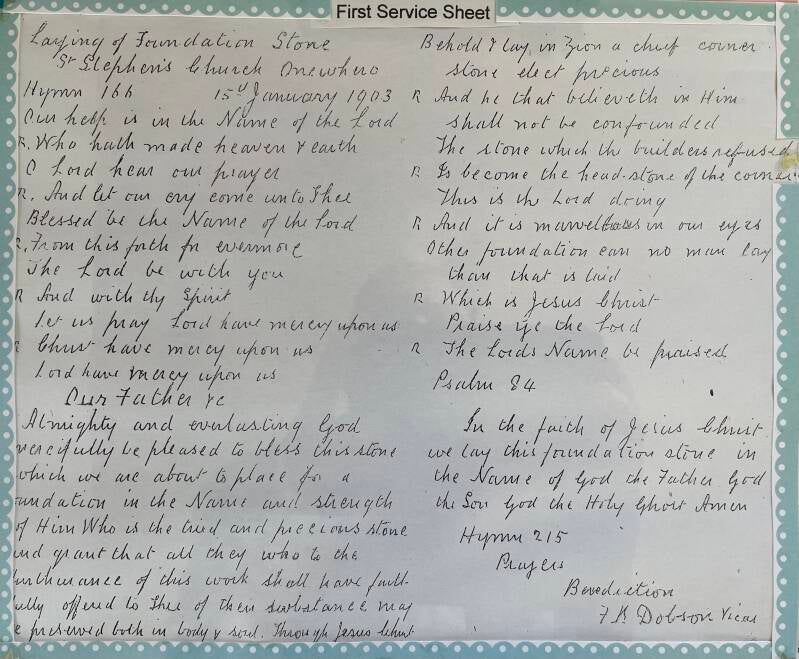 First Service Sheet
Laying of Foundation Stone
St Stephen's Church Onewhero
Hymn 166 15th January 1903
Our help is in the Name of the Lord
R. Who hath made heaven & earth
O Lord hear our prayer
R. And let our cry come unto Thee
Blessed be the Name of the Lord
R. From this forth for evermore
The Lord be with you
R And with thy Spirit
Let us pray Lord have mercy upon us
R Christ have mercy upon us
Lord have mercy upon us
Our Father &c
Almighty and everlasting God
mercifully be pleased to bless this stone
which we are about to place for a
undation in the Name and strength
of Him Who is the tried and precious stone
nd grant that all they who to the
urtherance of this work shall have faith-
ully offered to Thee of their substance may
e preserved both in body & soul. Through Jesus Christ
Behold I lay in Zion a chief corner
stone elect precious
R And he that believeth in Him
shall not be confounded
The stone which the builders refused
R Is become the head-stone of the corner
This is the Lord doing
R And it is marvellous in our eyes
Other foundation can no man lay
than that is laid
R Which is Jesus Christ
Praise ye the Lord
R The Lords Name be praised
Psalm 84
In the faith of Jesus Christ
we lay this foundation stone in
the Name of God the Father God
the Son God the Holy Ghost Amen
Hymn 215
Prayers
Benediction
Dobson Vicar